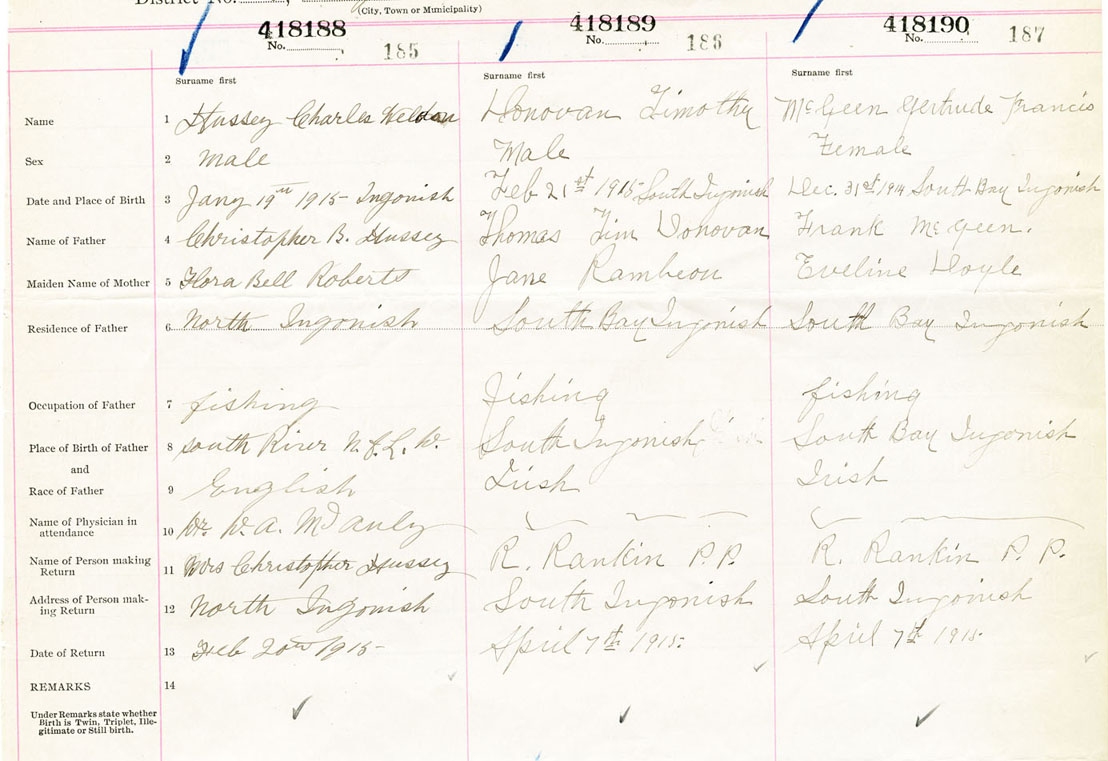 District No.
(City, Town or Municipality)
418188 418189 418190
No. 185 No. 186 No. 187
Surname first Surname first Surname first
Name 1 Hussey Charles Weldon Donovan Timothy McGeen Gertrude Francis
Sex 2 male Male Female
Date and Place of Birth 3 Jany 19th 1915 Ingonish Feb 21st 1915 South Ingonish Dec. 31st 1914 South Bay Ingonish
Name of Father 4 Christopher B. Hussey Thomas Tim Donovan Frank McGeen.
Maiden Name of Mother 5 Flora Bell Roberts Jane Rambeou Eveline Doyle
Residence of Father 6 North Ingonish South Bay Ingonish South Bay Ingonish
Occupation of Father 7 fishing Fishing fishing
Place of Birth of Father 8 South River South Ingonish South Bay Ingonish
and
Race of Father 9 English Irish Irish
Name of Physician in
attendance 10 Dr.
Name of Person making
Return 11 Mrs Christopher Hussey R. Rankin P.P. R. Rankin P. P.
Address of Person mak-
ing Return 12 North Ingonish South Ingonish South Ingonish
Date of Return 13 Feb 1915 April 7th 1915. April 7th 1915.
REMARKS 14
Under Remarks state whether
Birth is Twin, Triplet, Ille-
gitimate or Still birth.